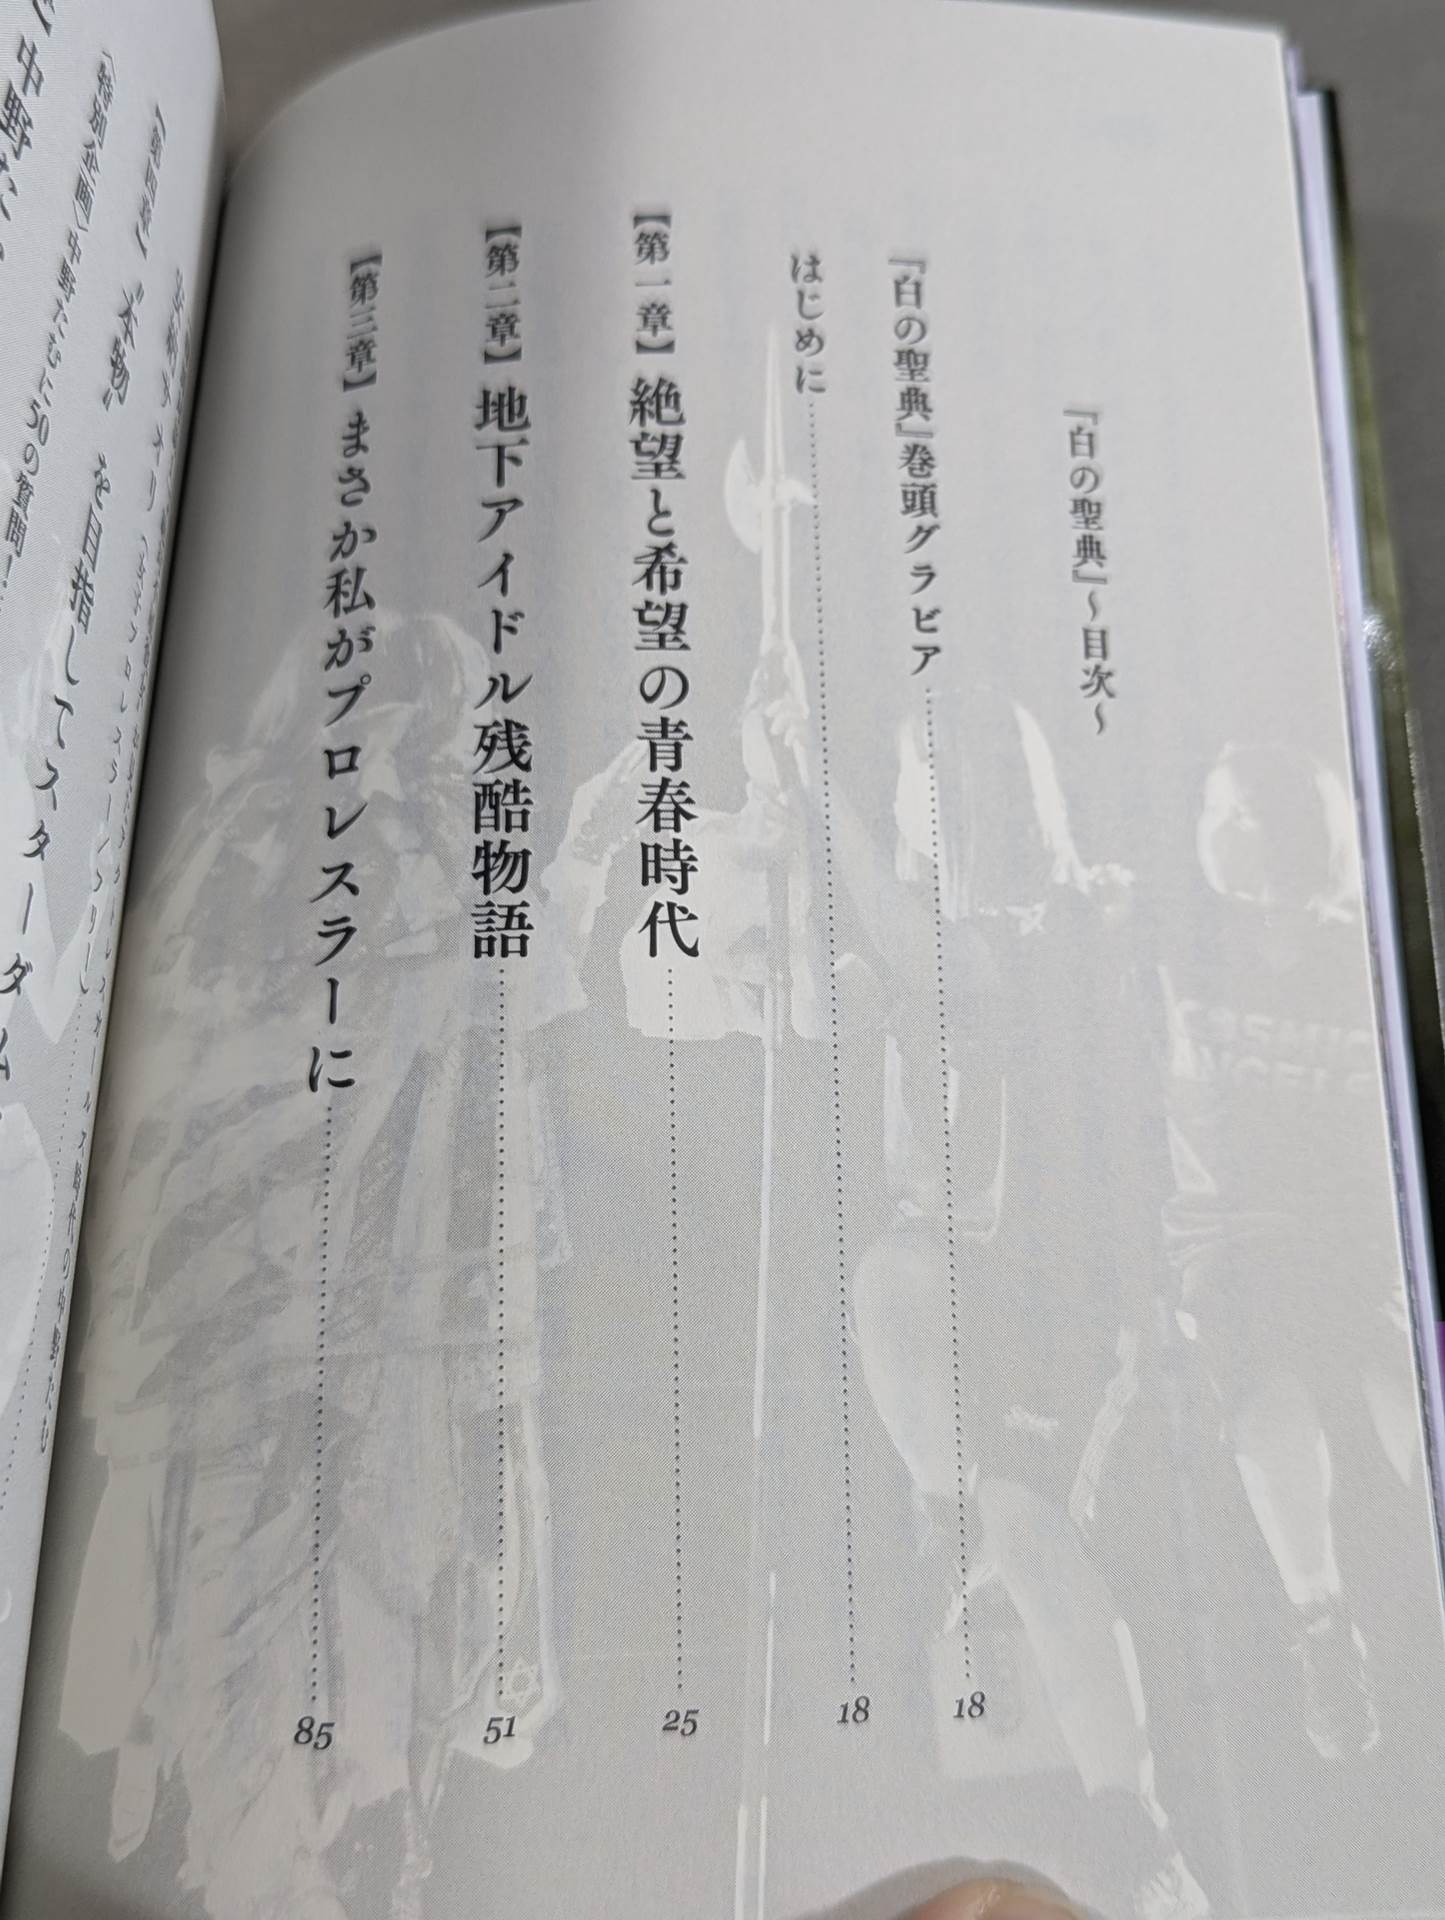 『白の聖典』〜目次〜
『白の聖典』巻頭グラビア 18
はじめに 18
【第一章】絶望と希望の青春時代 25
【第二章】地下アイドル残酷物語 51
【第三章】まさか私がプロレスラーに 85
“本物”を目指してスターダム
〈特別企画〉中野たむに50の質問!